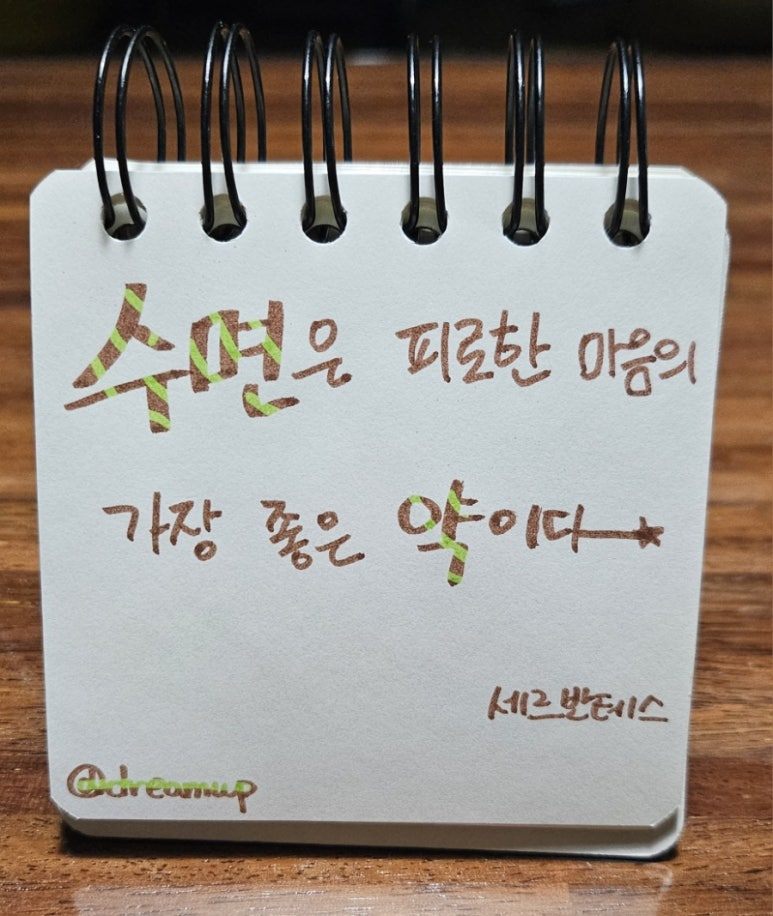 수면은 피로한 마음의
가장 좋은 약이다
세르반테스
@dreamup